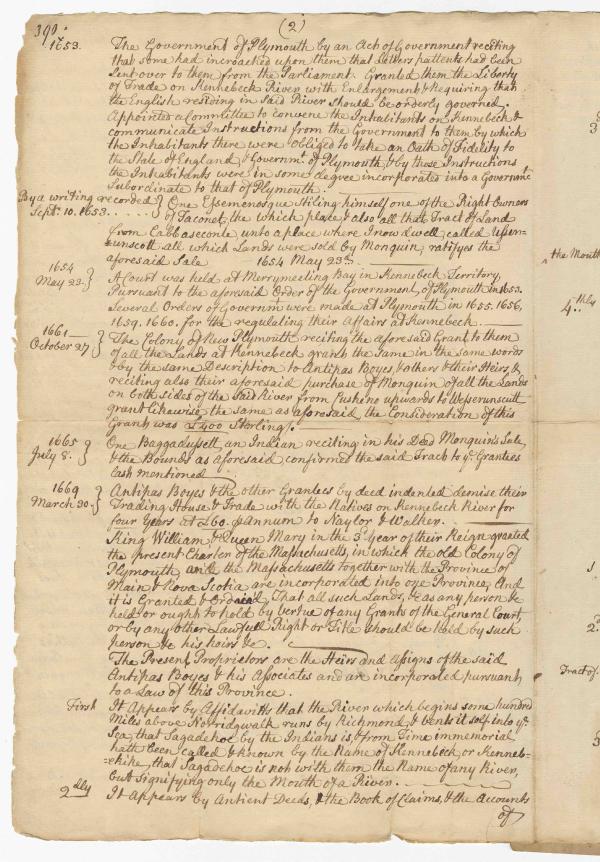 390.
(2)
1653. The Government of Plymouth by an Act of Government reciting
that some had incroached upon them that Letters pattents had been
Sent over to them from the Parliament. Granted them the Liberty
of Trade on Kennebeck River with Enlargement & Requiring that
the English residing in Said River should be orderly governed.
Appointed a Committee to convene the Inhabitants on Kennebeck &
communicate Instructions from the Government to them by which
the Inhabitants there were obliged to take an Oath of Fidelity to
the State of England, & Governmt. of Plymouth & by those Instructions
the Inhabitants were in some degree incorporated into a Governmt.
Subordinate to that of Plymouth.
By a writing recorded } One Essemenosque Stiling himself one of the Right Owners
Septr. 10. 1653. . . . . . } of Taconet, the which place, & also all that Tract of Land
from Cabbaseconke unto a place where I now dwell, called Ussen-
unscott all which Lands were sold by Monquin, ratifyes the
aforesaid Sale 1654 May 23d.
1654 May 23. } A Court was held at Merrymeeting Bay in Kennebeck Territory,
Pursuant to the aforesaid Order of the Government, of Plymouth in 1653.
Several Orders of Governmt were made at Plymouth in 1655. 1656,
1659. 1660. for the regulating their Affairs at Kennebeck.
1661 October 27 } The Colony of New Plymouth reciting the aforesaid Grant to them
of all the Lands at Kennebeck grants the Same in the same words
& by the same Description to Antipas Boyes & others & their Heirs, &
reciting also their aforesaid purchase of Monquin of all the Lands
on both sides of the Said River from Cusheno upwards to Wesserunscutt
grant likewise the same as aforesaid, the Consideration of this
Grant was £400 Sterling/.
1665 July 8. } One Baggadussett an Indian reciting in his Deed Monquin's Sale,
& the Bounds as aforesaid confirmed the said Tract to ye. Grantees
last mentioned
1669 March 30. } Antipas Boyes & the other Grantees by deed indented demise their
Trading House & Trade with the Natives on Kennebeck River for
four Years at £60. p annum to Naylor & Walker.
King William & Queen Mary in the 3d Year of their Reign granted
the present Charter of the Massachusetts, in which the old Colony of
Plymouth and the Massachusetts together with the Province of
Main & Nova Scotia are incorporated into one Province, And
it is Granted & Ordaind, That all such Lands, &c as any person &c
held or ought to hold by vertue of any Grants of the General Court,
or by any other Lawfull Right or Title should be held by such
person &c his heirs &c.
The Present Proprietors are the Heirs and Assigns of the said
Antipas Boyes & his Associates and are incorporated pursuant
to a Law of this Province.
First It Appears by Affidavitts that the River which begins some hundred
Miles above Norridgwalk runs by Richmond, & vents it self into ye
Sea, that Sagadehoc by the Indians is, & from Time immemorial
hath been called & known by the Name of Kennebeck or Kenneb-
-ekike, that Sagadehoc is not with them the Name of any River,
but signifying only the Mouth of a River.
2dly It Appears by Antient Deeds, & the Book of Claims, & the Accounts
of
the Mouth
4.thly
2d
Tract of
3